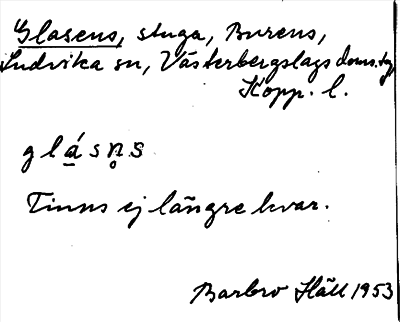 Glasens, stuga, Burens,
Ludvika sn, Västerbergslags doms.
Kopp. l.
glásn̥s
Finns ej längre kvar.
Barbro Häll 1953